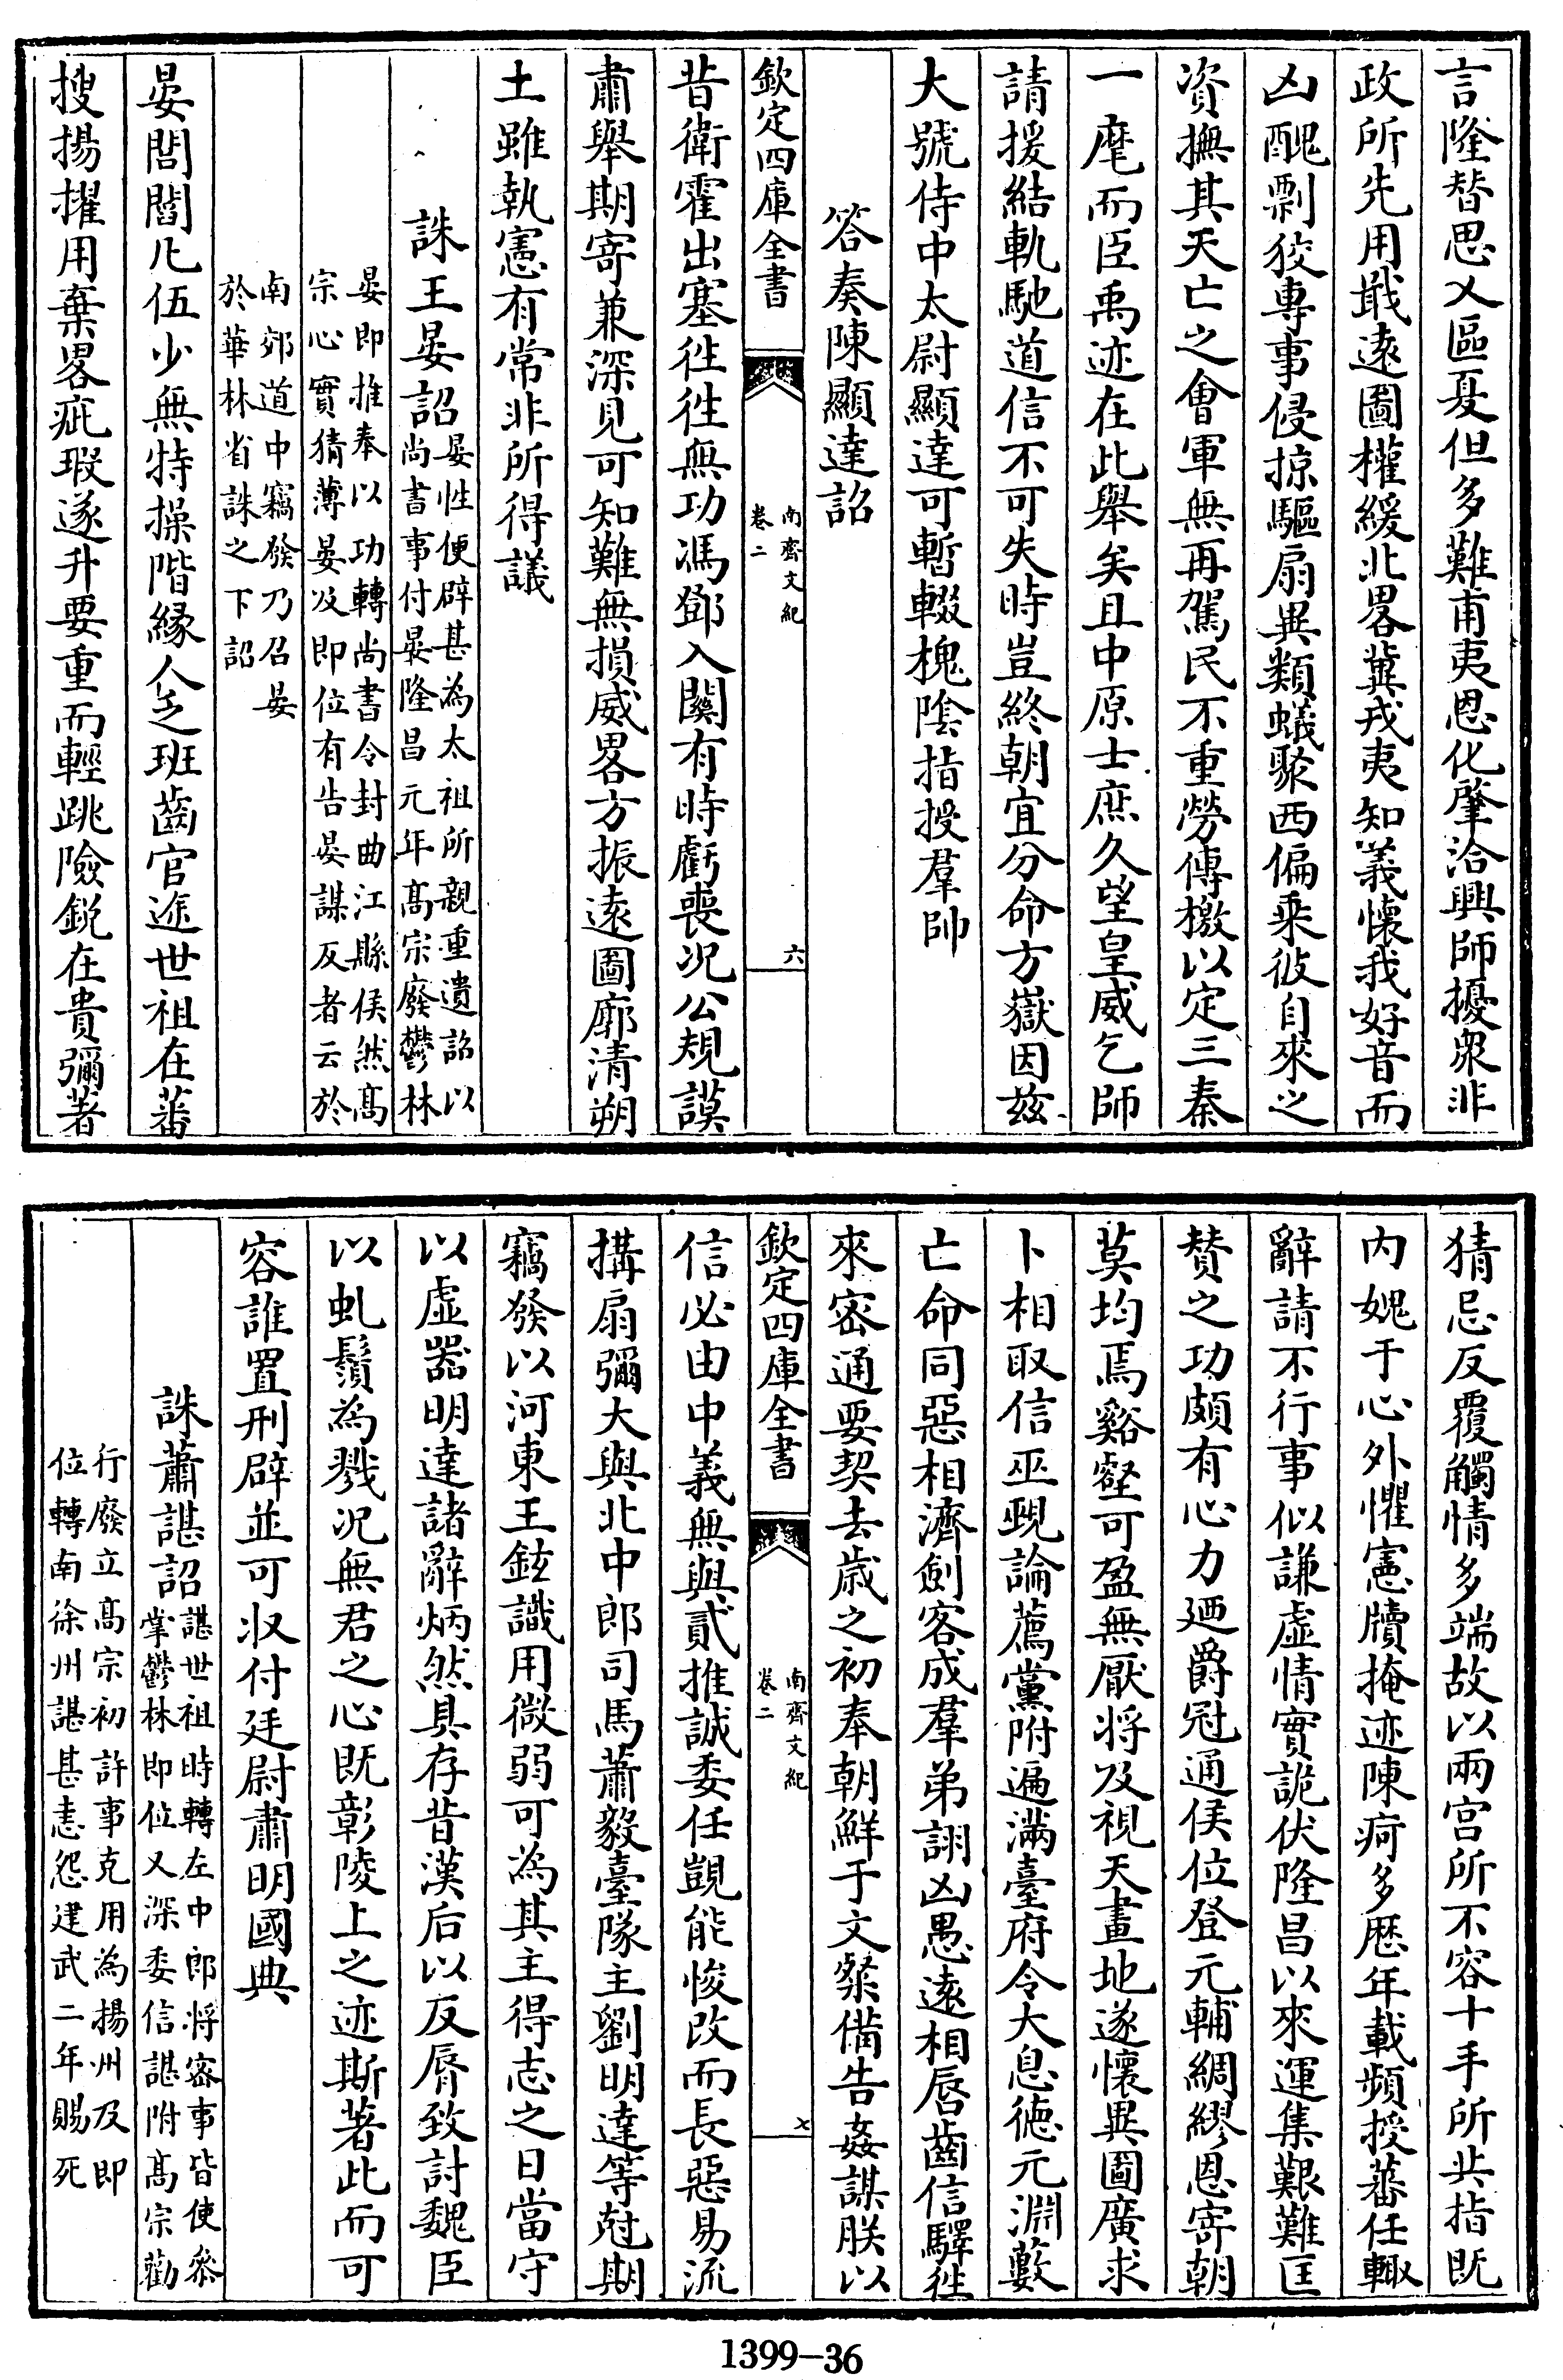 言隆替思乂區夏但多難甫夷恩化肇洽興師擾衆非
政所先用戢遠圖權緩北畧冀戎夷知義懷我好音而
凶醜剽狡專事侵掠驅扇異類蟻聚西偏乘彼自來之
資撫其天亡之會軍無再駕民不重勞傳檄以定三秦
一麾而臣禹迹在此舉矣且中原士庶久望皇威乞師
請援結軌馳道信不可失時豈終朝宜分命方嶽因兹
大號侍中太尉顯達可暫輟槐陰指授羣帥
答奏陳顯達詔
欽定四庫全書
南齊文紀
卷二
六
昔衛霍出塞徃徃無功馮鄧入關有時虧喪况公規謨
肅舉期寄兼深見可知難無損威畧方振遠圖廓清朔
土雖執憲有常非所得議
誅王晏詔
晏性便辟甚為太祖所親重遺詔以
尚書事付晏隆昌元年高宗廢鬱林
晏即推奉以功轉尚書令封曲江縣侯然高
宗心實猜薄晏及即位有告晏謀反者云於
南郊道中竊發乃召晏
於華林省誅之下詔
晏閭閻凡伍少無特操階緣人乏班齒官途世祖在蕃
搜揚擢用棄畧疵瑕遂升要重而輕跳險鋭在貴彌著
猜忌反覆觸情多端故以兩宫所不容十手所共指既
内媿于心外懼憲牘掩迹陳疴多歴年載頻授蕃任輙
辭請不行事似謙虚情實詭伏隆昌以來運集艱難匡
賛之功頗有心力廼爵冠通侯位登元輔綢繆恩寄朝
莫均焉谿壑可盈無厭將及視天畫地遂懷異圖廣求
卜相取信巫覡論薦黨附遍滿臺府令大息德元淵藪
亡命同惡相濟劍客成羣弟詡凶愚遠相唇齒信驛徃
來宻通要契去歲之初奉朝鮮于文粲備告姦謀朕以
欽定四庫全書
南齊文紀
卷二
七
信必由中義無與貳推誠委任覬能悛改而長惡易流
搆扇彌大與北中郎司馬蕭毅臺隊主劉明達等尅期
竊發以河東王鉉識用微弱可為其主得志之日當守
以虚器明達諸辭炳然具存昔漢后以反脣致討魏臣
以虬鬚為戮况無君之心既彰陵上之迹斯著此而可
容誰置刑辟並可収付廷尉肅明國典
誅蕭諶詔
諶世祖時轉左中郎將宻事皆使參
掌鬱林即位又深委信諶附高宗勸
行廢立高宗初許事克用為揚州及即
位轉南徐州諶甚恚怨建武二年賜死
1399-36